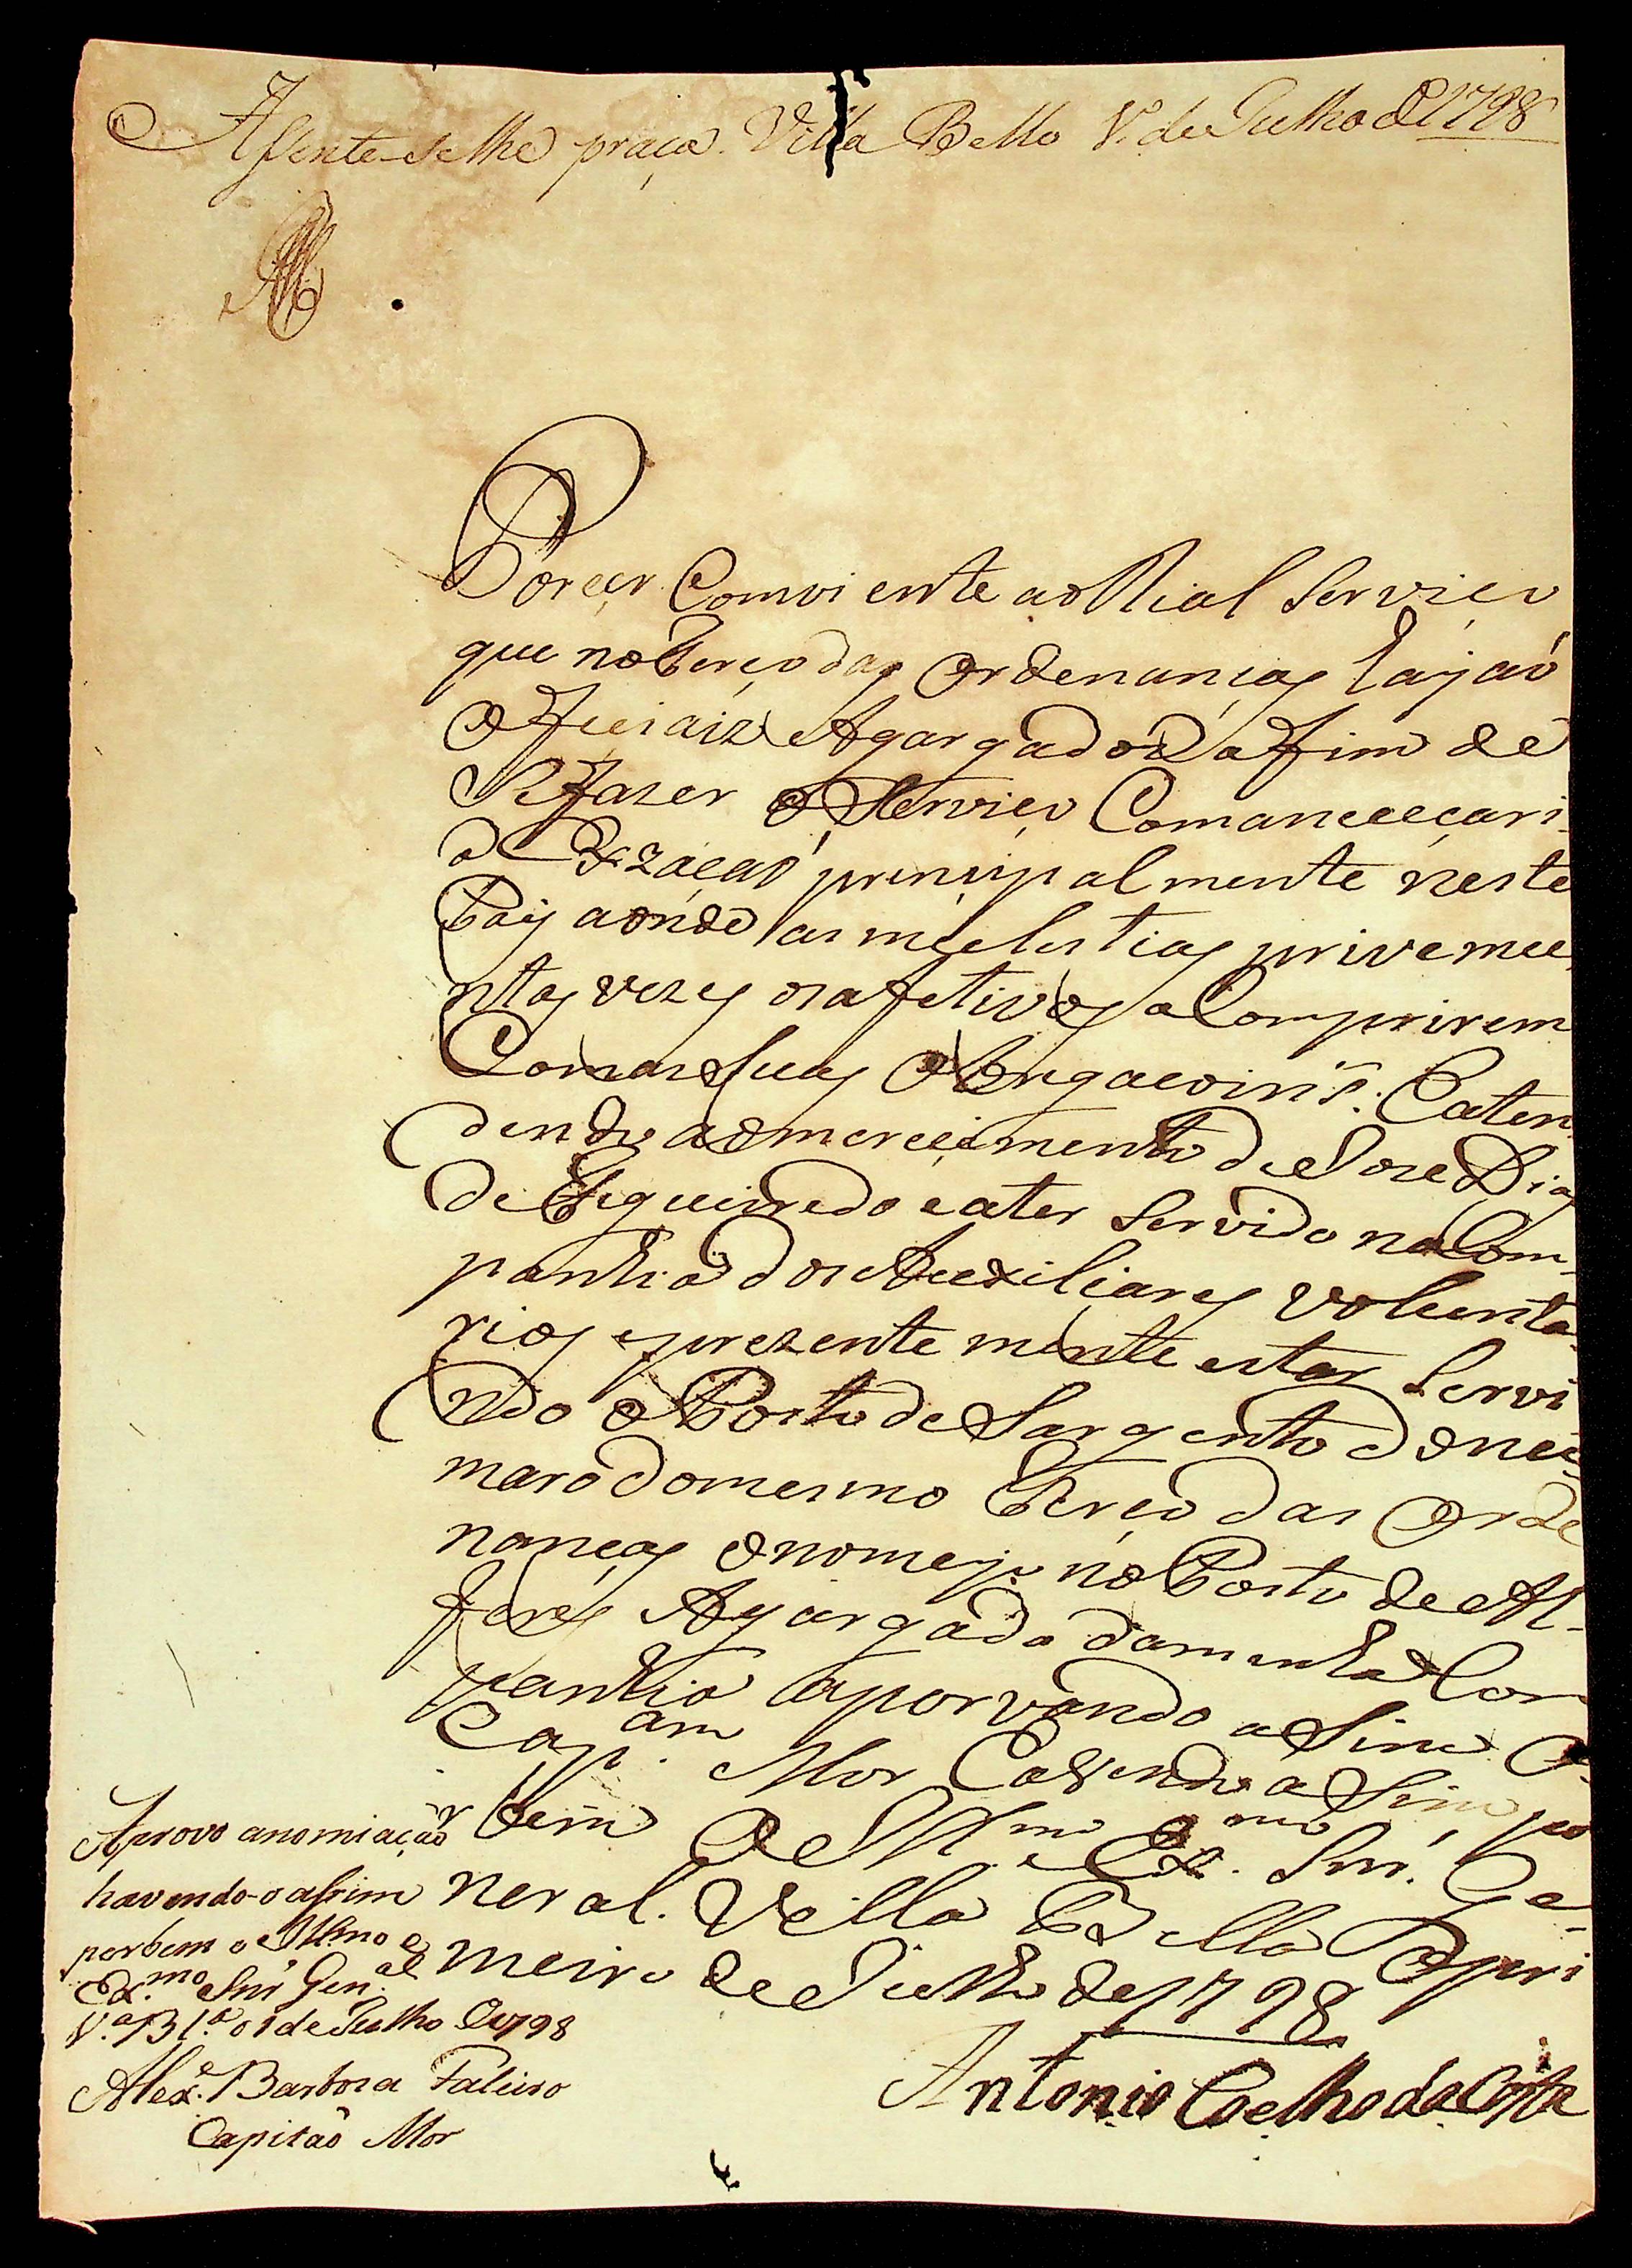 Assente-selhe praça. Villa Bella 1.º de Julho de 1798
Por cer Comviente ao Rial Serviço
que no Terço das Ordenanças haja õ
Oficiaiz Agargados a fim de
Se fazer o Serviço Comanececari
a Ezzação prinsipalmente neste
Pais aonde as molestias prive mu
ntas vezes os afetivos a Comprirem
Comas Suas Obrigacoins: E aten
dendo ao mereçimento de Jose Dias
de Figueiredo e a ter Servido na Com-
panhia dos Auxiliares Volunta
rios e prezente mente estar Servi
ndo o Posto de Sargento do nu
maro do mesmo Terço das Orde
nanças o nomejo no Posto de Al-
feres Agargado da minha Com
panhia aporvando a Sim o
Cap.am Mor E avendo a Sim por
bem o Ill.mo e Ex.mo Snr. Ge-
neral. Villa Bella o pri
meiro de Julho de 1798
Antonio Coelho da Costa
Aprovo anomiação
havendo-o assim
por bem o Illmo e
Ex.mo Snr Gen.al
V.a B.la o 1 de Julho de 1798
Alex.e Barboza Faleiro
Capitaõ Mor